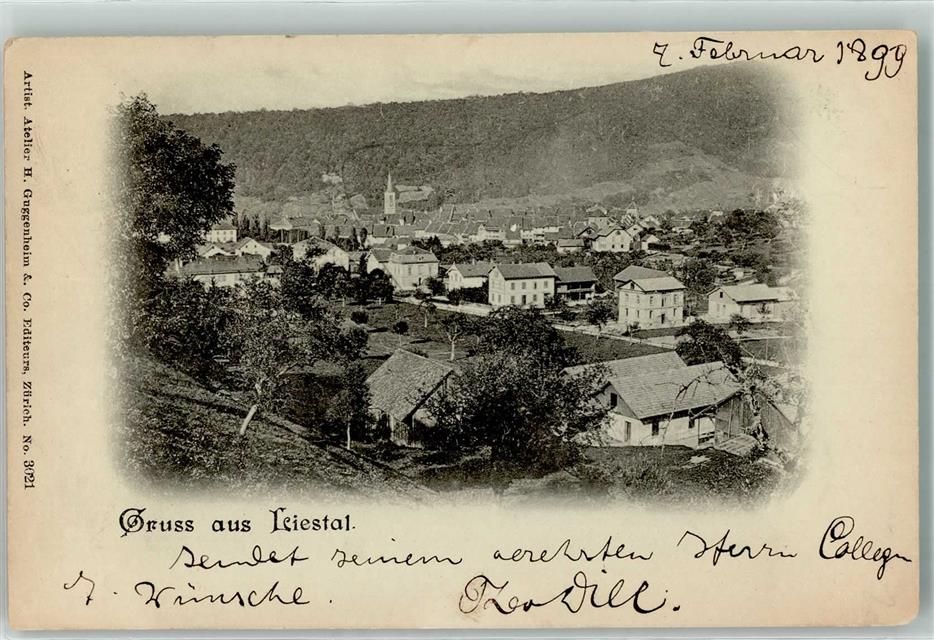 7. Februar 1899
Artist. Atelier H. Guggenheim &. Co. Editeurs, Zürich. No. 3021
Gruss aus Liestal.
sendet seinem verehrten Herrn Collegen
Wünsche.